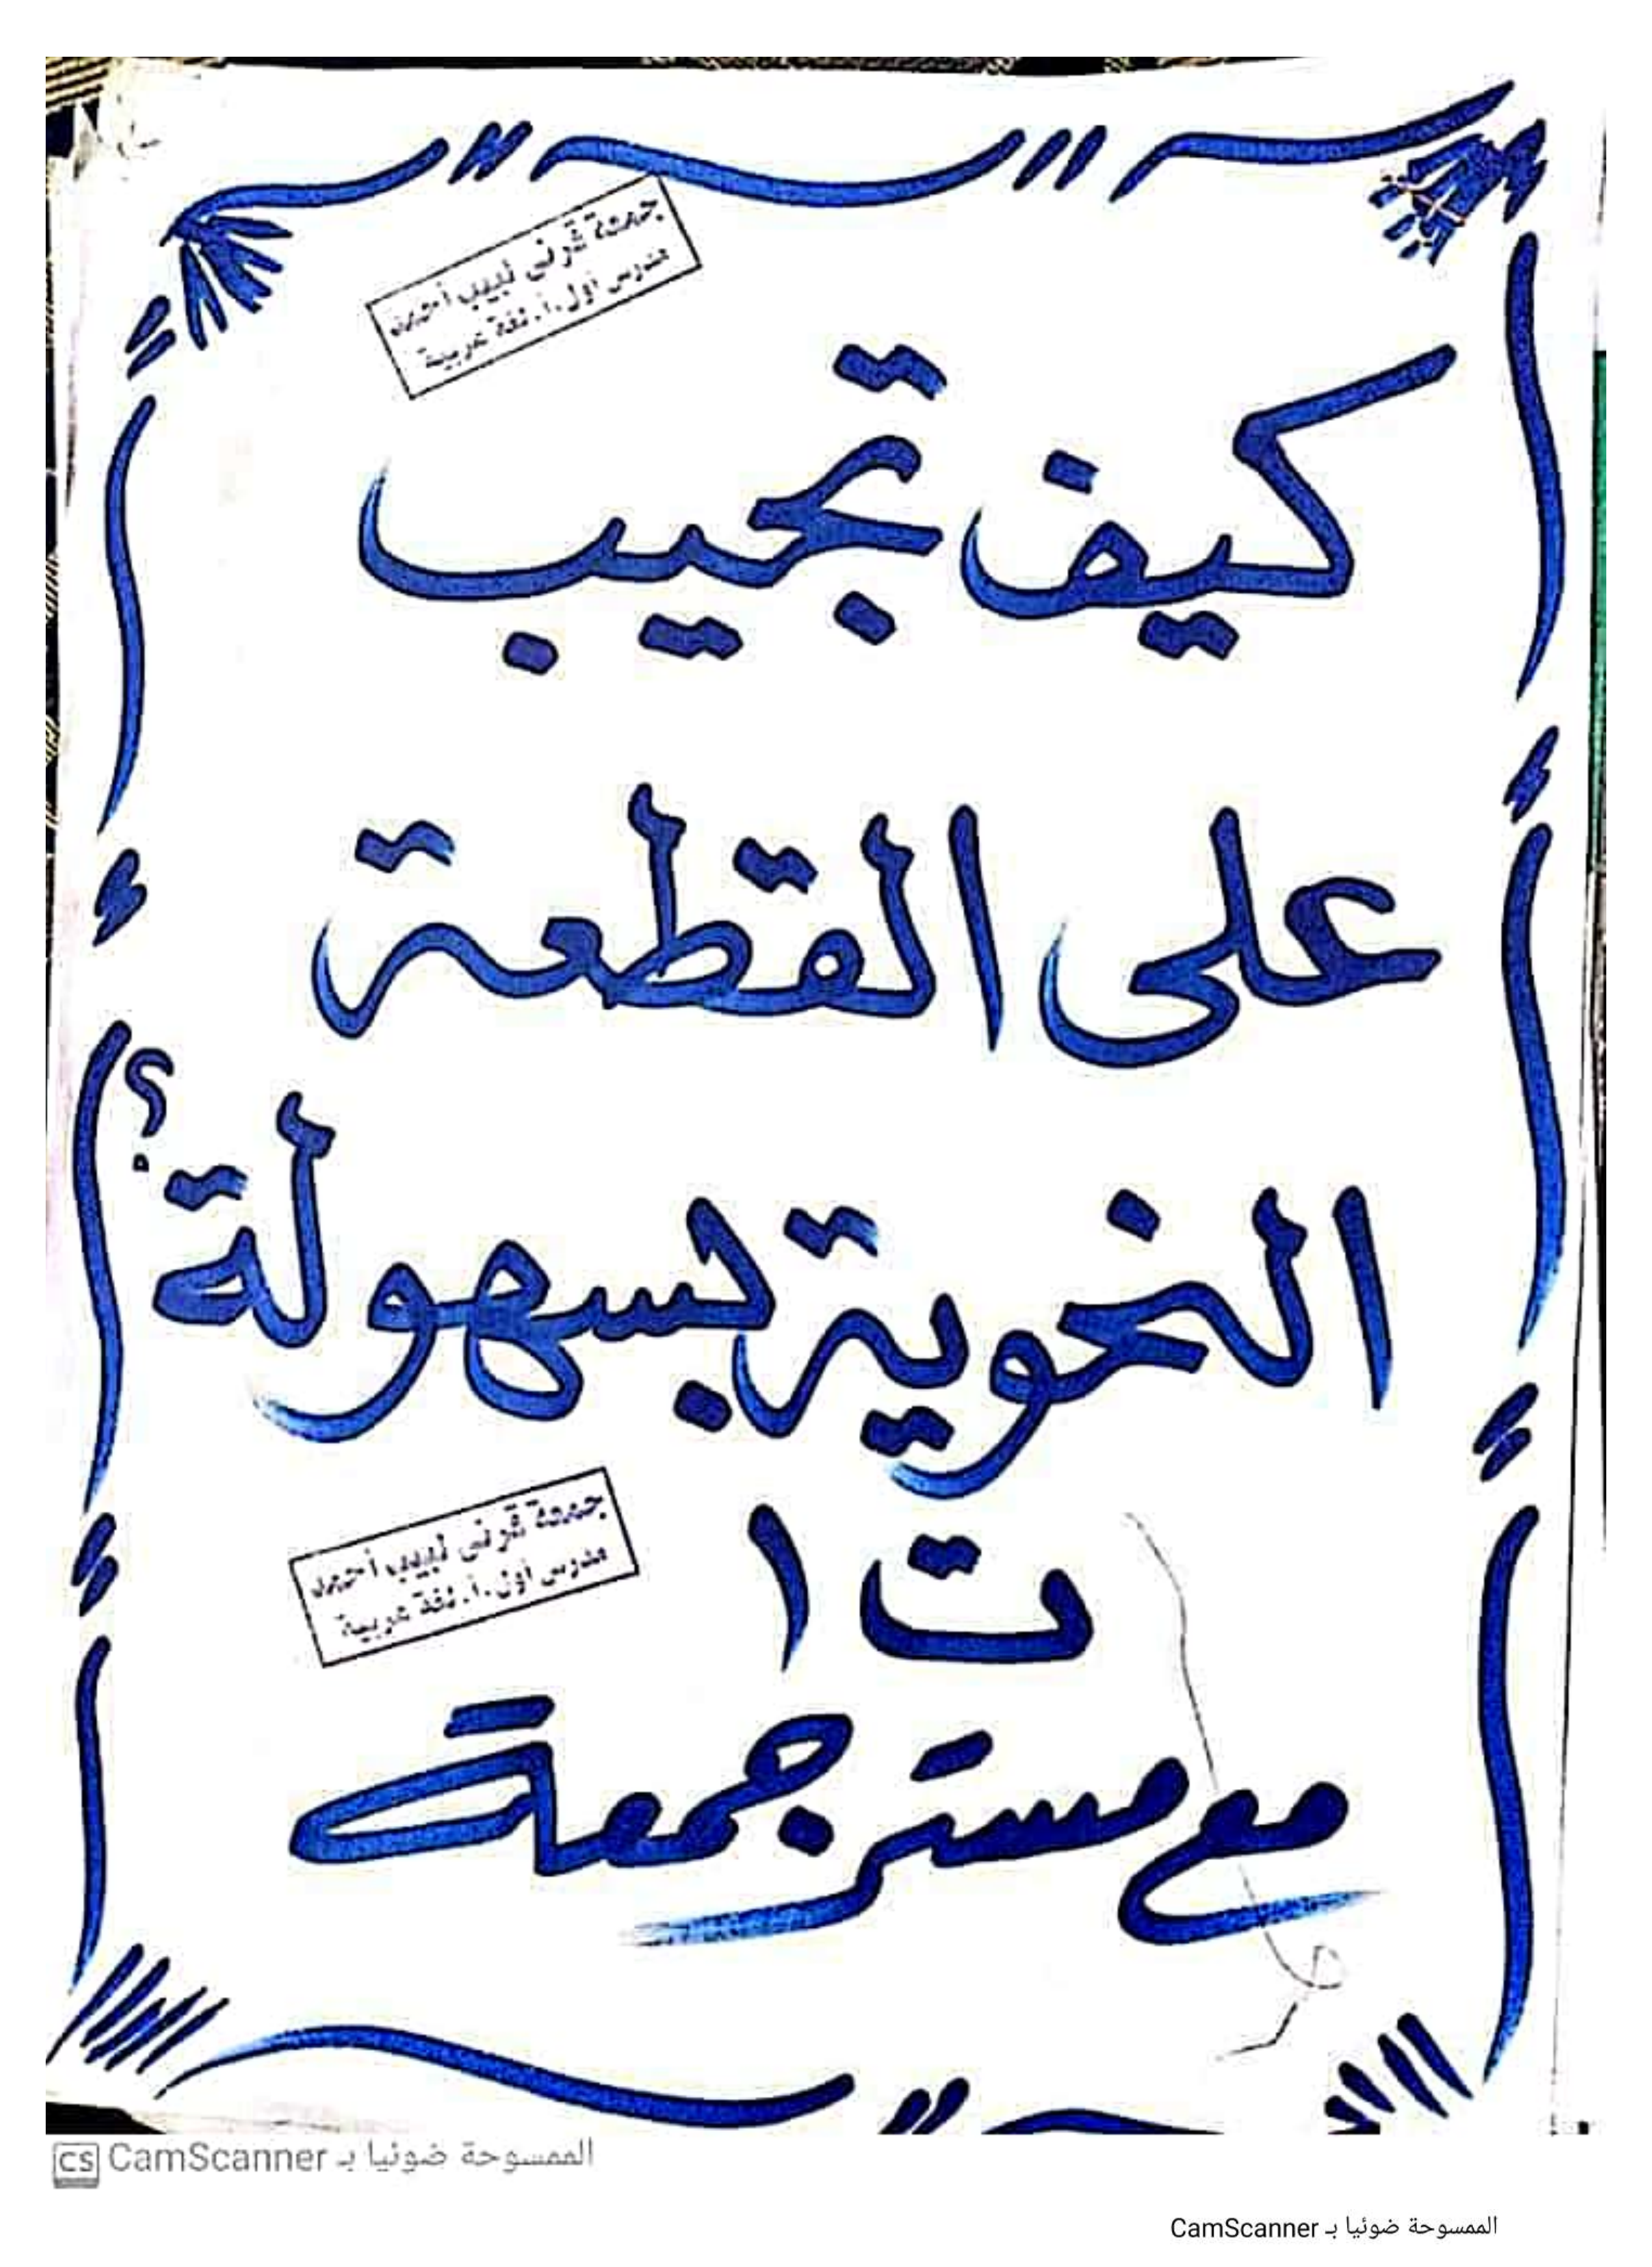 جمعة قرنى لبيب أحمد
مدرس أول.أ. لغة عربية
كيف تجيب
على القطعة
النحوية بسهولة؟
جمعة قرنى لبيب أحمد
مدرس أول.أ. لغة عربية
ت ١
مع مستر جمعة
CS الممسوحة ضوئيا بـ CamScanner
الممسوحة ضوئيا بـ CamScanner